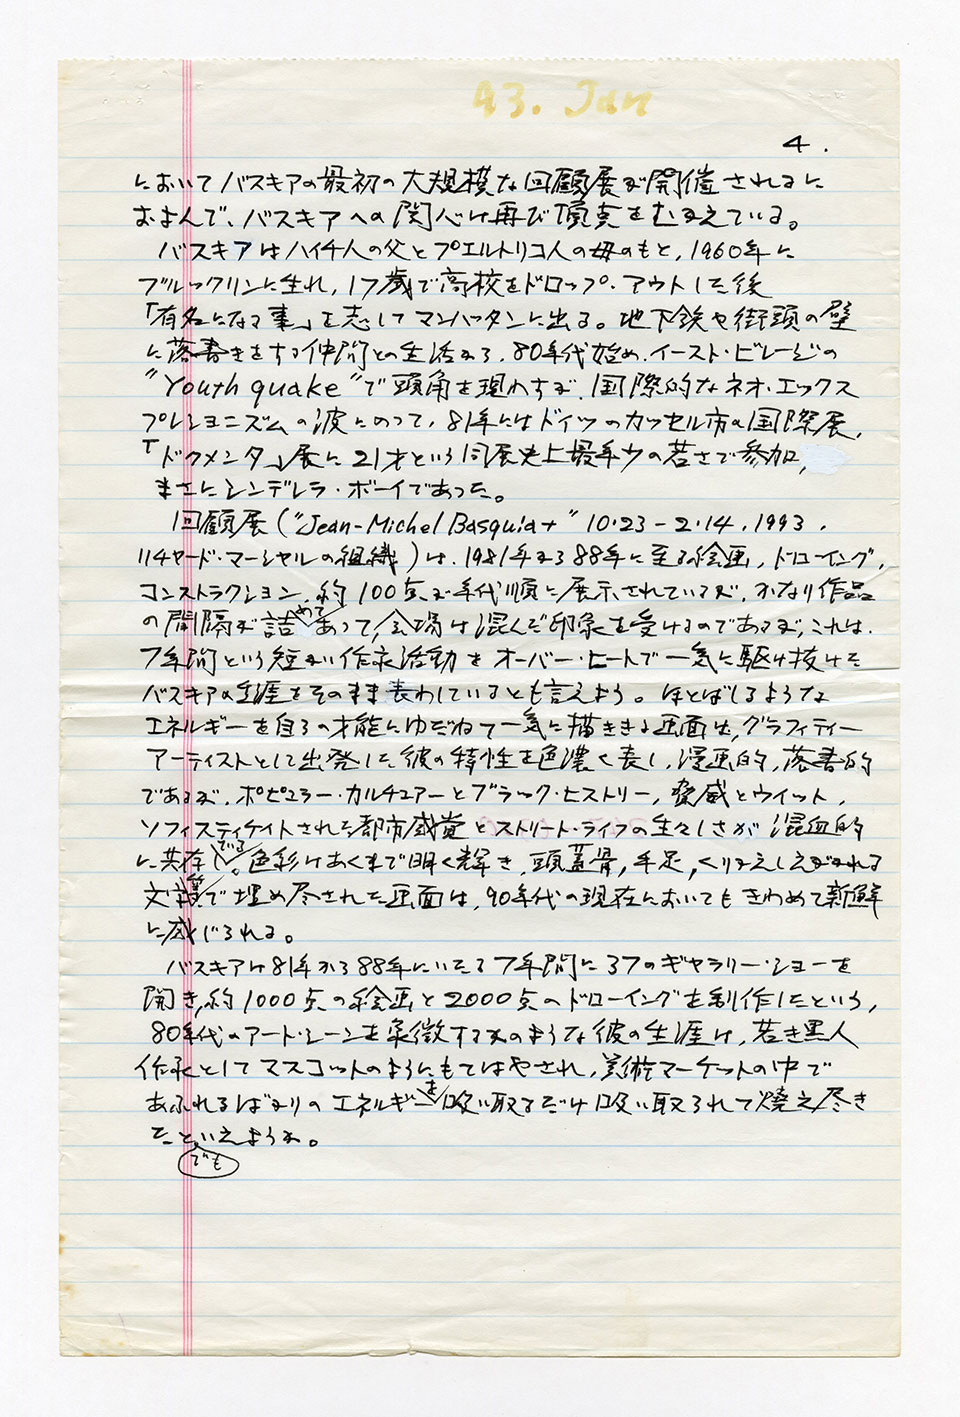 93. Jan
4.
においてバスキアの最初の大規模な回顧展が開催されるに
およんで、バスキアへの関心は再び頂点をむかえている。
バスキアはハイチ人の父とプエルトリコ人の母のもと，1960年に
ブルックリンに生れ，17歳で高校をドロップ・アウトした後
「有名になる事」を志してマンハッタンに出る。地下鉄や街頭の壁
に落書きをする仲間との生活から，80年代始め，イースト・ビレージの
"Youth quake"で頭角を現わすが，国際的なネオ・エックス
プレショニズムの波にのって，81年にはドイツのカッセル市の国際展，
「ドクメンタ」展に21才という同展史上最年少の若さで参加，
まさにシンデレラ・ボーイであった。
回顧展("Jean-Michel Basquiat" 10・23－2・14，1993，
リチャード・マーシャルの組織)は，1981年から88年に至る絵画，ドローイング，
コンストラクション，約100点が年代順に展示されているが，かなり作品
の間隔が詰めてあって，会場は混んだ印象を受けるのであるが，これは，
7年間という短かい作家活動をオーバー・ヒートで一気に駆け抜けた
バスキアの生涯をそのまま表わしているとも言えよう。ほとばしるような
エネルギーを自らの才能にゆだねて一気に描ききる画面は，グラフィティー
アーティストとして出発した彼の特性を色濃く表し，漫画的，落書的
であるが，ポピュラー・カルチュアーとブラック・ヒストリー，脅威とウイット，
ソフィスティケイトされた都市感覚とストリート・ライフの生々しさが混血的
に共存している。色彩はあくまで明く輝き，頭蓋骨，手足，くりかえしえがかれる
文字等で埋め尽された画面は，90年代の現在においてもきわめて新鮮
に感じられる。
バスキアは81年から88年にいたる7年間に37のギャラリー・ショーを
開き，約1000点の絵画と2000点のドローイングを制作したという，
80年代のアート・シーンを象徴するかのような彼の生涯は，若き黒人
作家としてマスコットのようにもてはやされ，美術マーケットの中で
あふれるばかりのエネルギーを吸い取るだけ吸い取られて燃え尽き
たといえようか。
でも